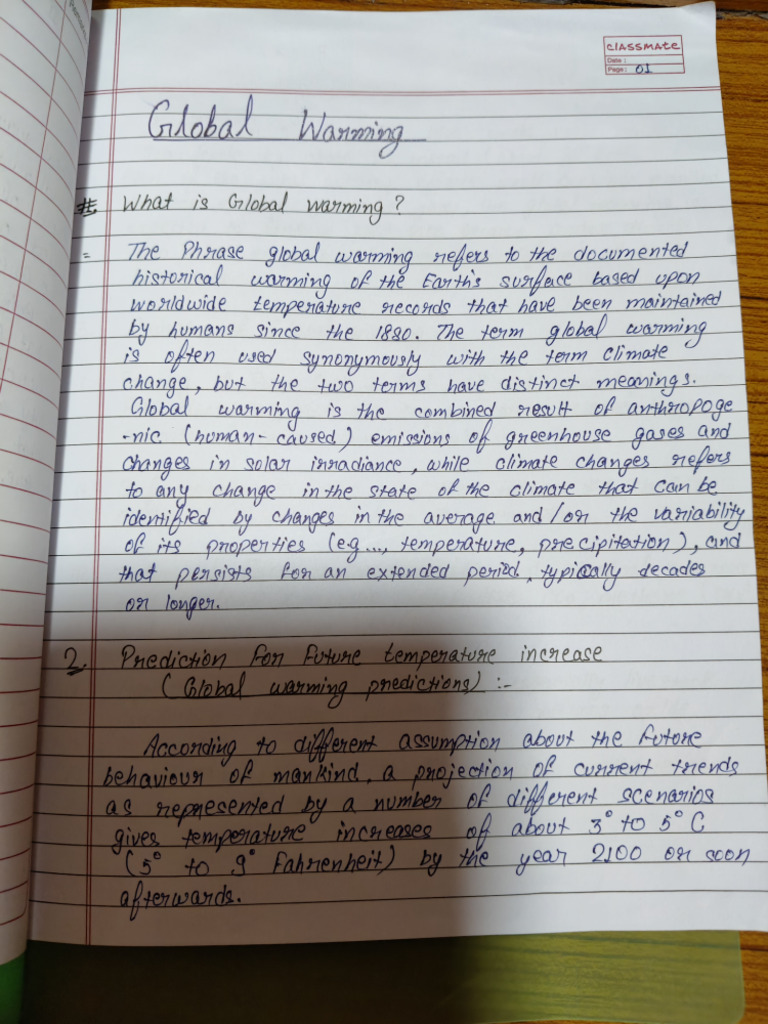 classmate
Date :
Page : 01
Global Warming
# What is Global warming?
= The Phrase global warming refers to the documented
historical warming of the Earth's surface based upon
worldwide temperature records that have been maintained
by humans since the 1880. The term global warming
is often used synonymously with the term climate
change, but the two terms have distinct meanings.
Global warming is the combined result of anthropoge
-nic (human-caused) emissions of greenhouse gases and
changes in solar irradiance, while climate changes refers
to any change in the state of the climate that can be
identified by changes in the average and/or the variability
of its properties (e.g..., temperature, precipitation), and
that persists for an extended period, typically decades
or longer.
2. Prediction for future temperature increase
(Global warming predictions) :-
According to different assumption about the future
behaviour of mankind, a projection of current trends
as represented by a number of different scenarios
gives temperature increases of about 3° to 5° C
(5° to 9° Fahrenheit) by the year 2100 or soon
afterwards.